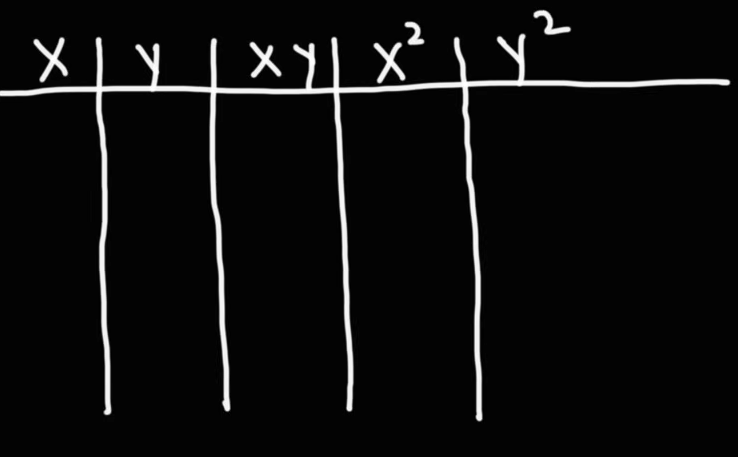 X y xy x² y²